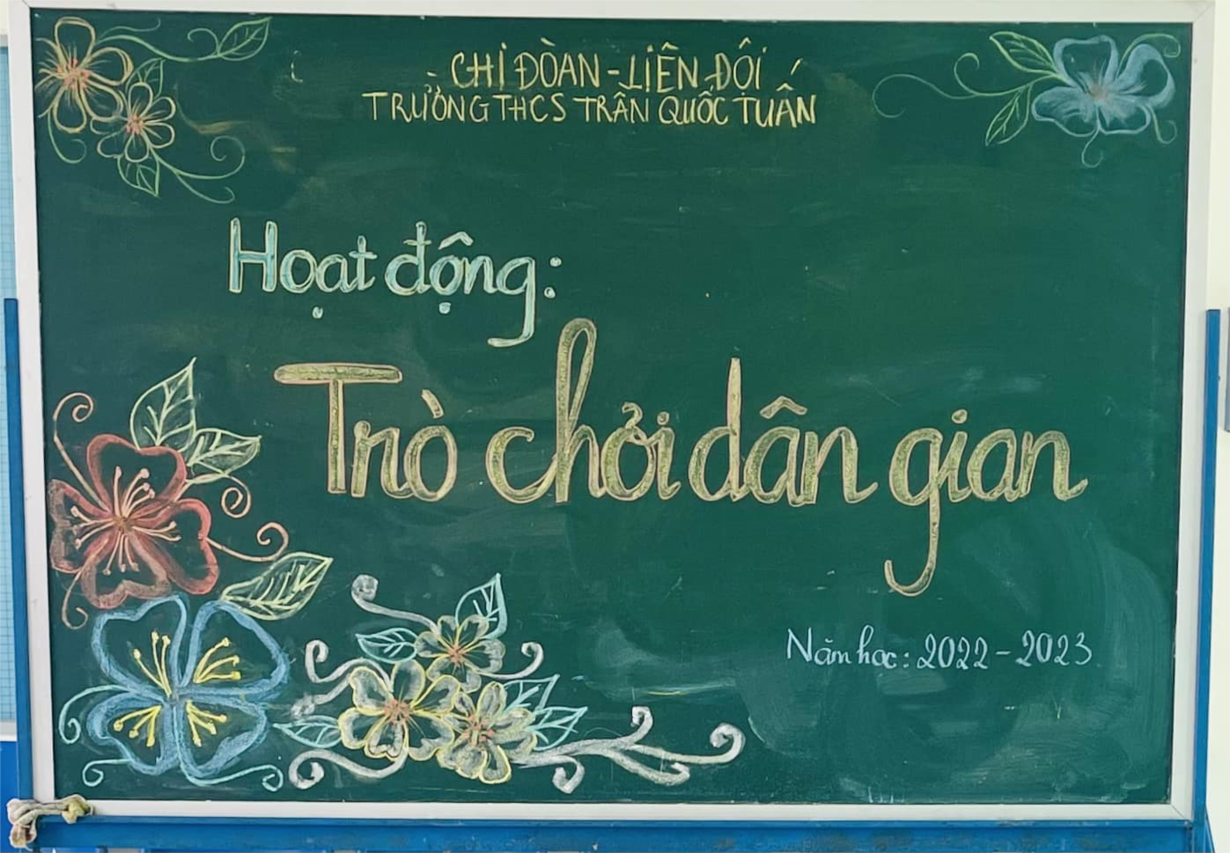 CHI ĐOÀN - LIÊN ĐỘI
TRƯỜNG THCS TRẦN QUỐC TUẤN
Hoạt động:
Trò chơi dân gian
Năm học: 2022 - 2023